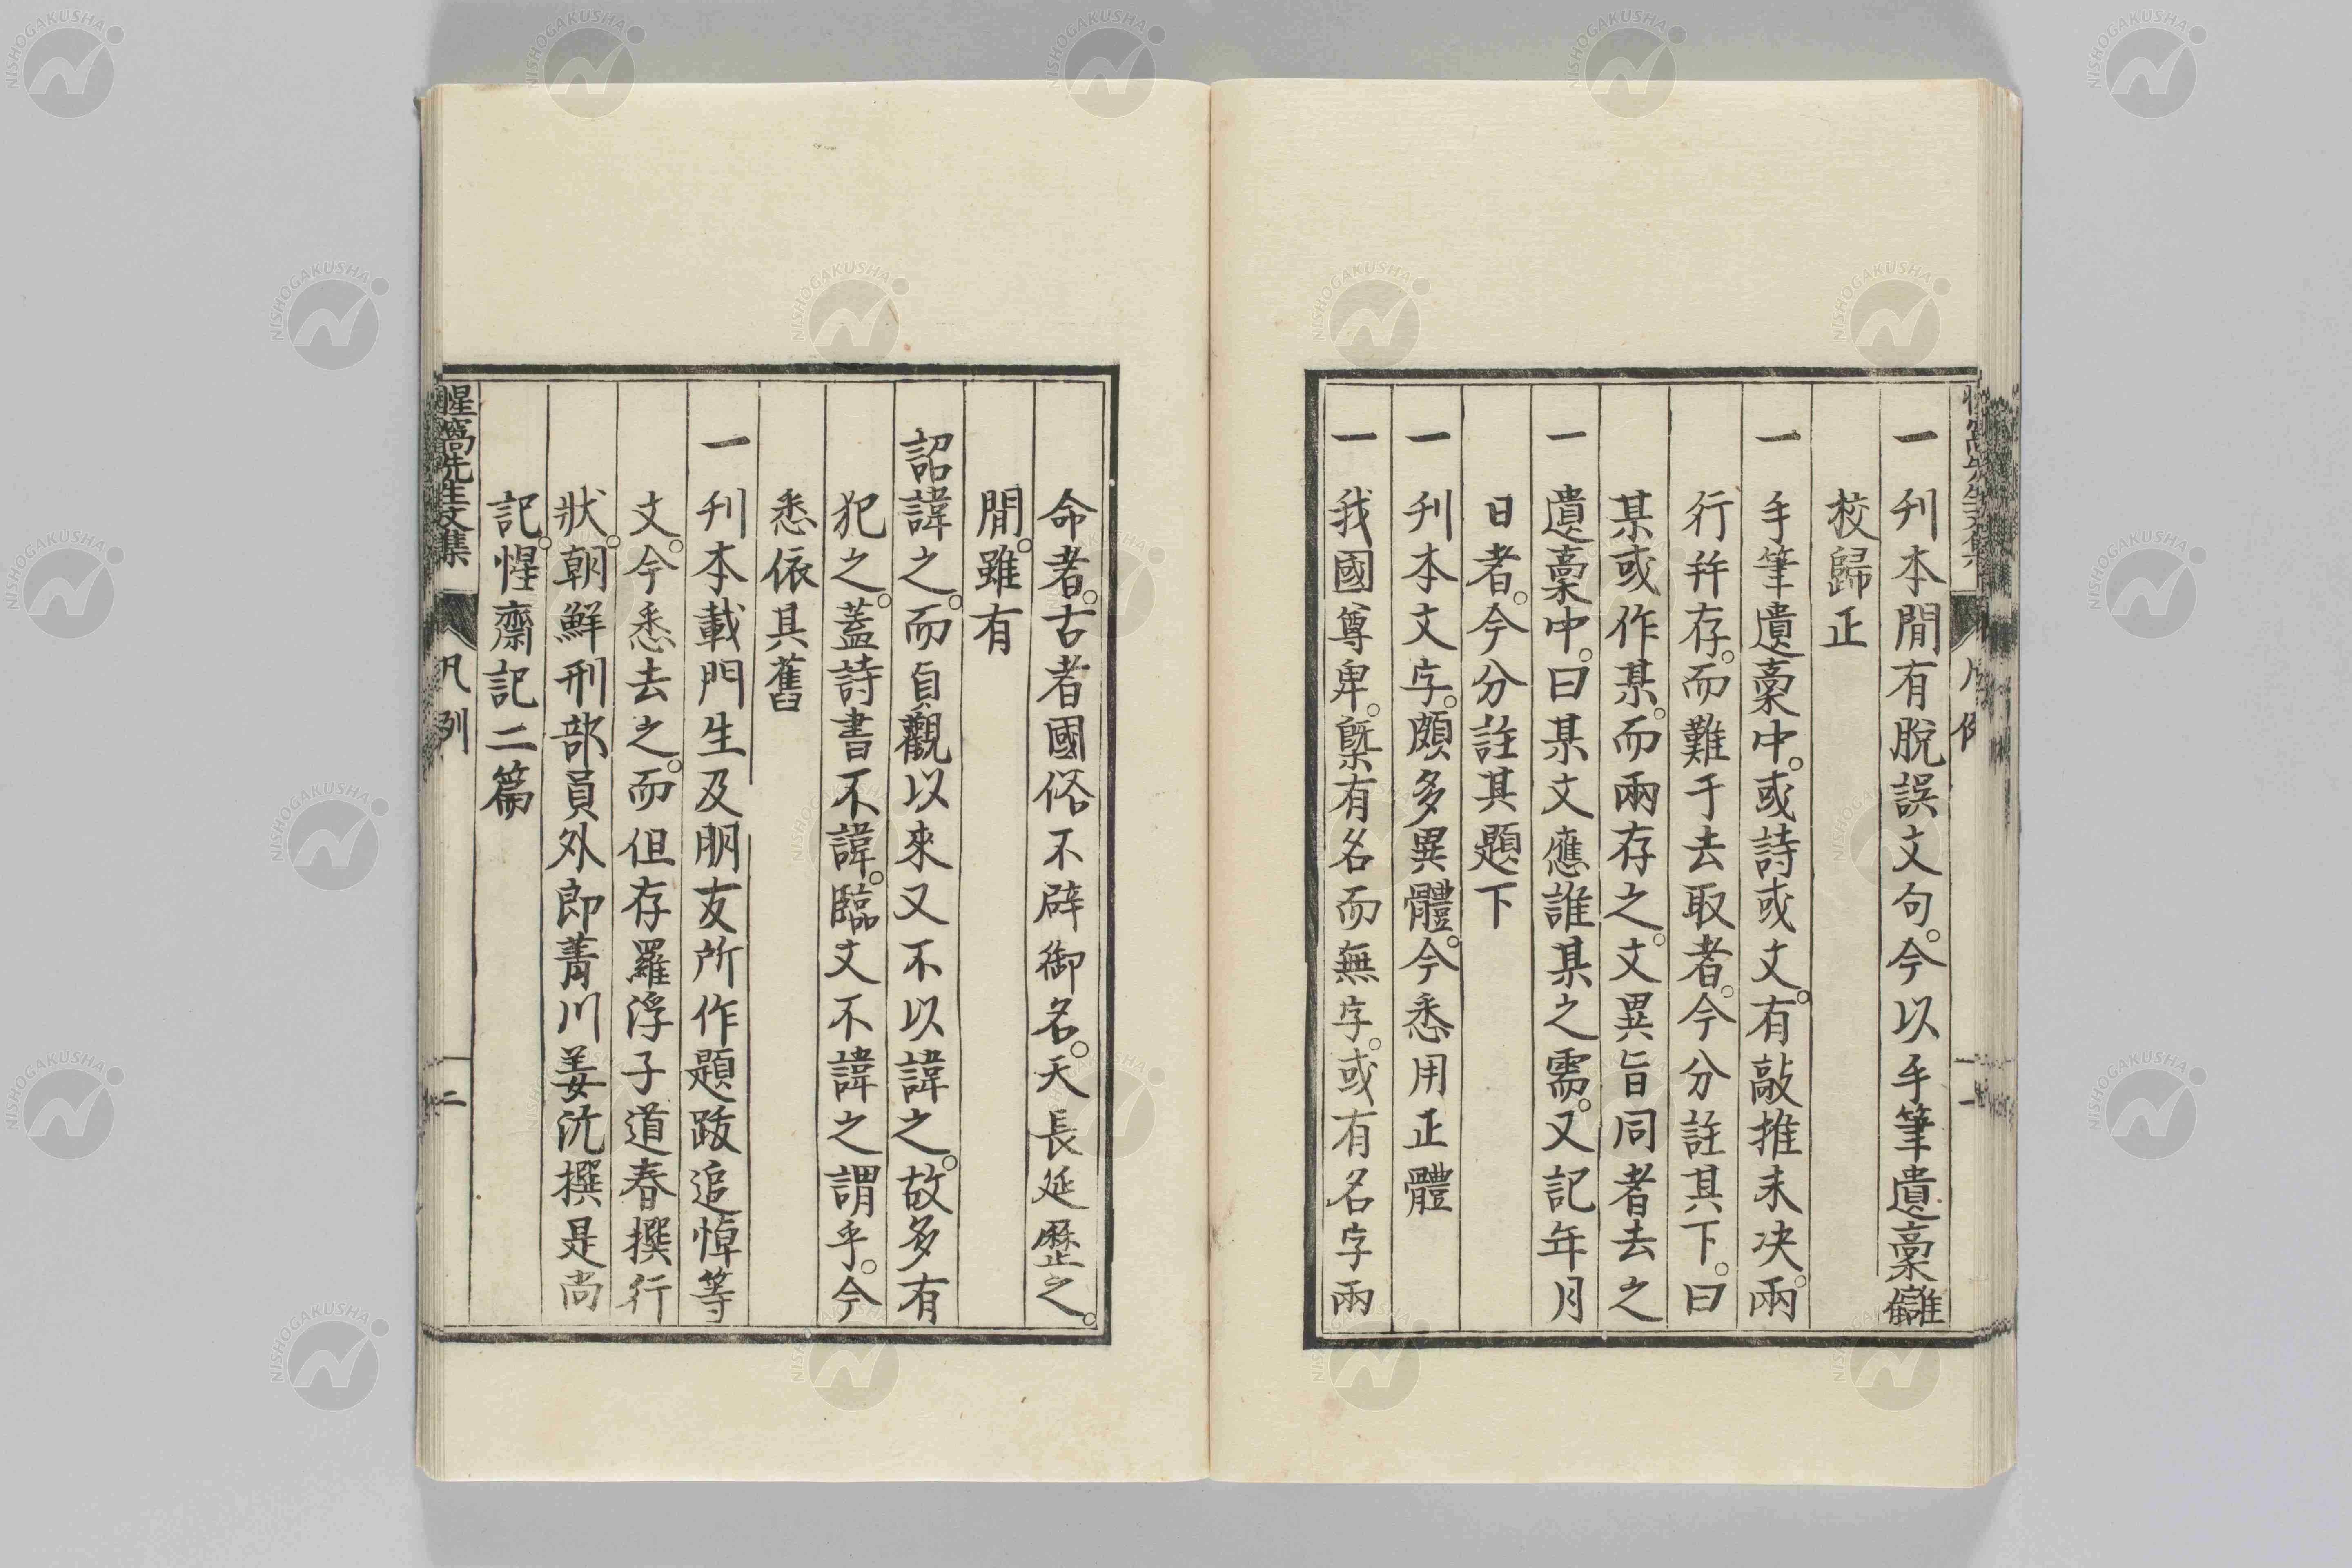 一刊本閒有脫誤文句。今以手筆遺稾讎
校歸正
一手筆遺稾中。或詩或文。有敲推未决。兩
行幷存。而難于去取者。今分註其下。曰
某或作某。而兩存之。文異旨同者去之
一遺稾中。曰某文應誰某之需。又記年月
日者。今分註其題下
一刊本文字。頗多異體。今悉用正體
一我國尊卑。槩有名而無字。或有名字兩
命者。古者國俗不辟御名。天長延歷之。
閒。雖有
詔諱之。而貞觀以來又不以諱之。故多有
犯之。蓋詩書不諱。臨文不諱之謂乎。今
悉依其舊
一刊本載門生及朋友所作題跋追悼等
文。今悉去之。而但存羅浮子道春撰行
狀。朝鮮刑部員外郎菁川姜沆撰是尚
記。惺齋記二篇
惺窩先生文集 凡例 二
NISHOGAKUSHA